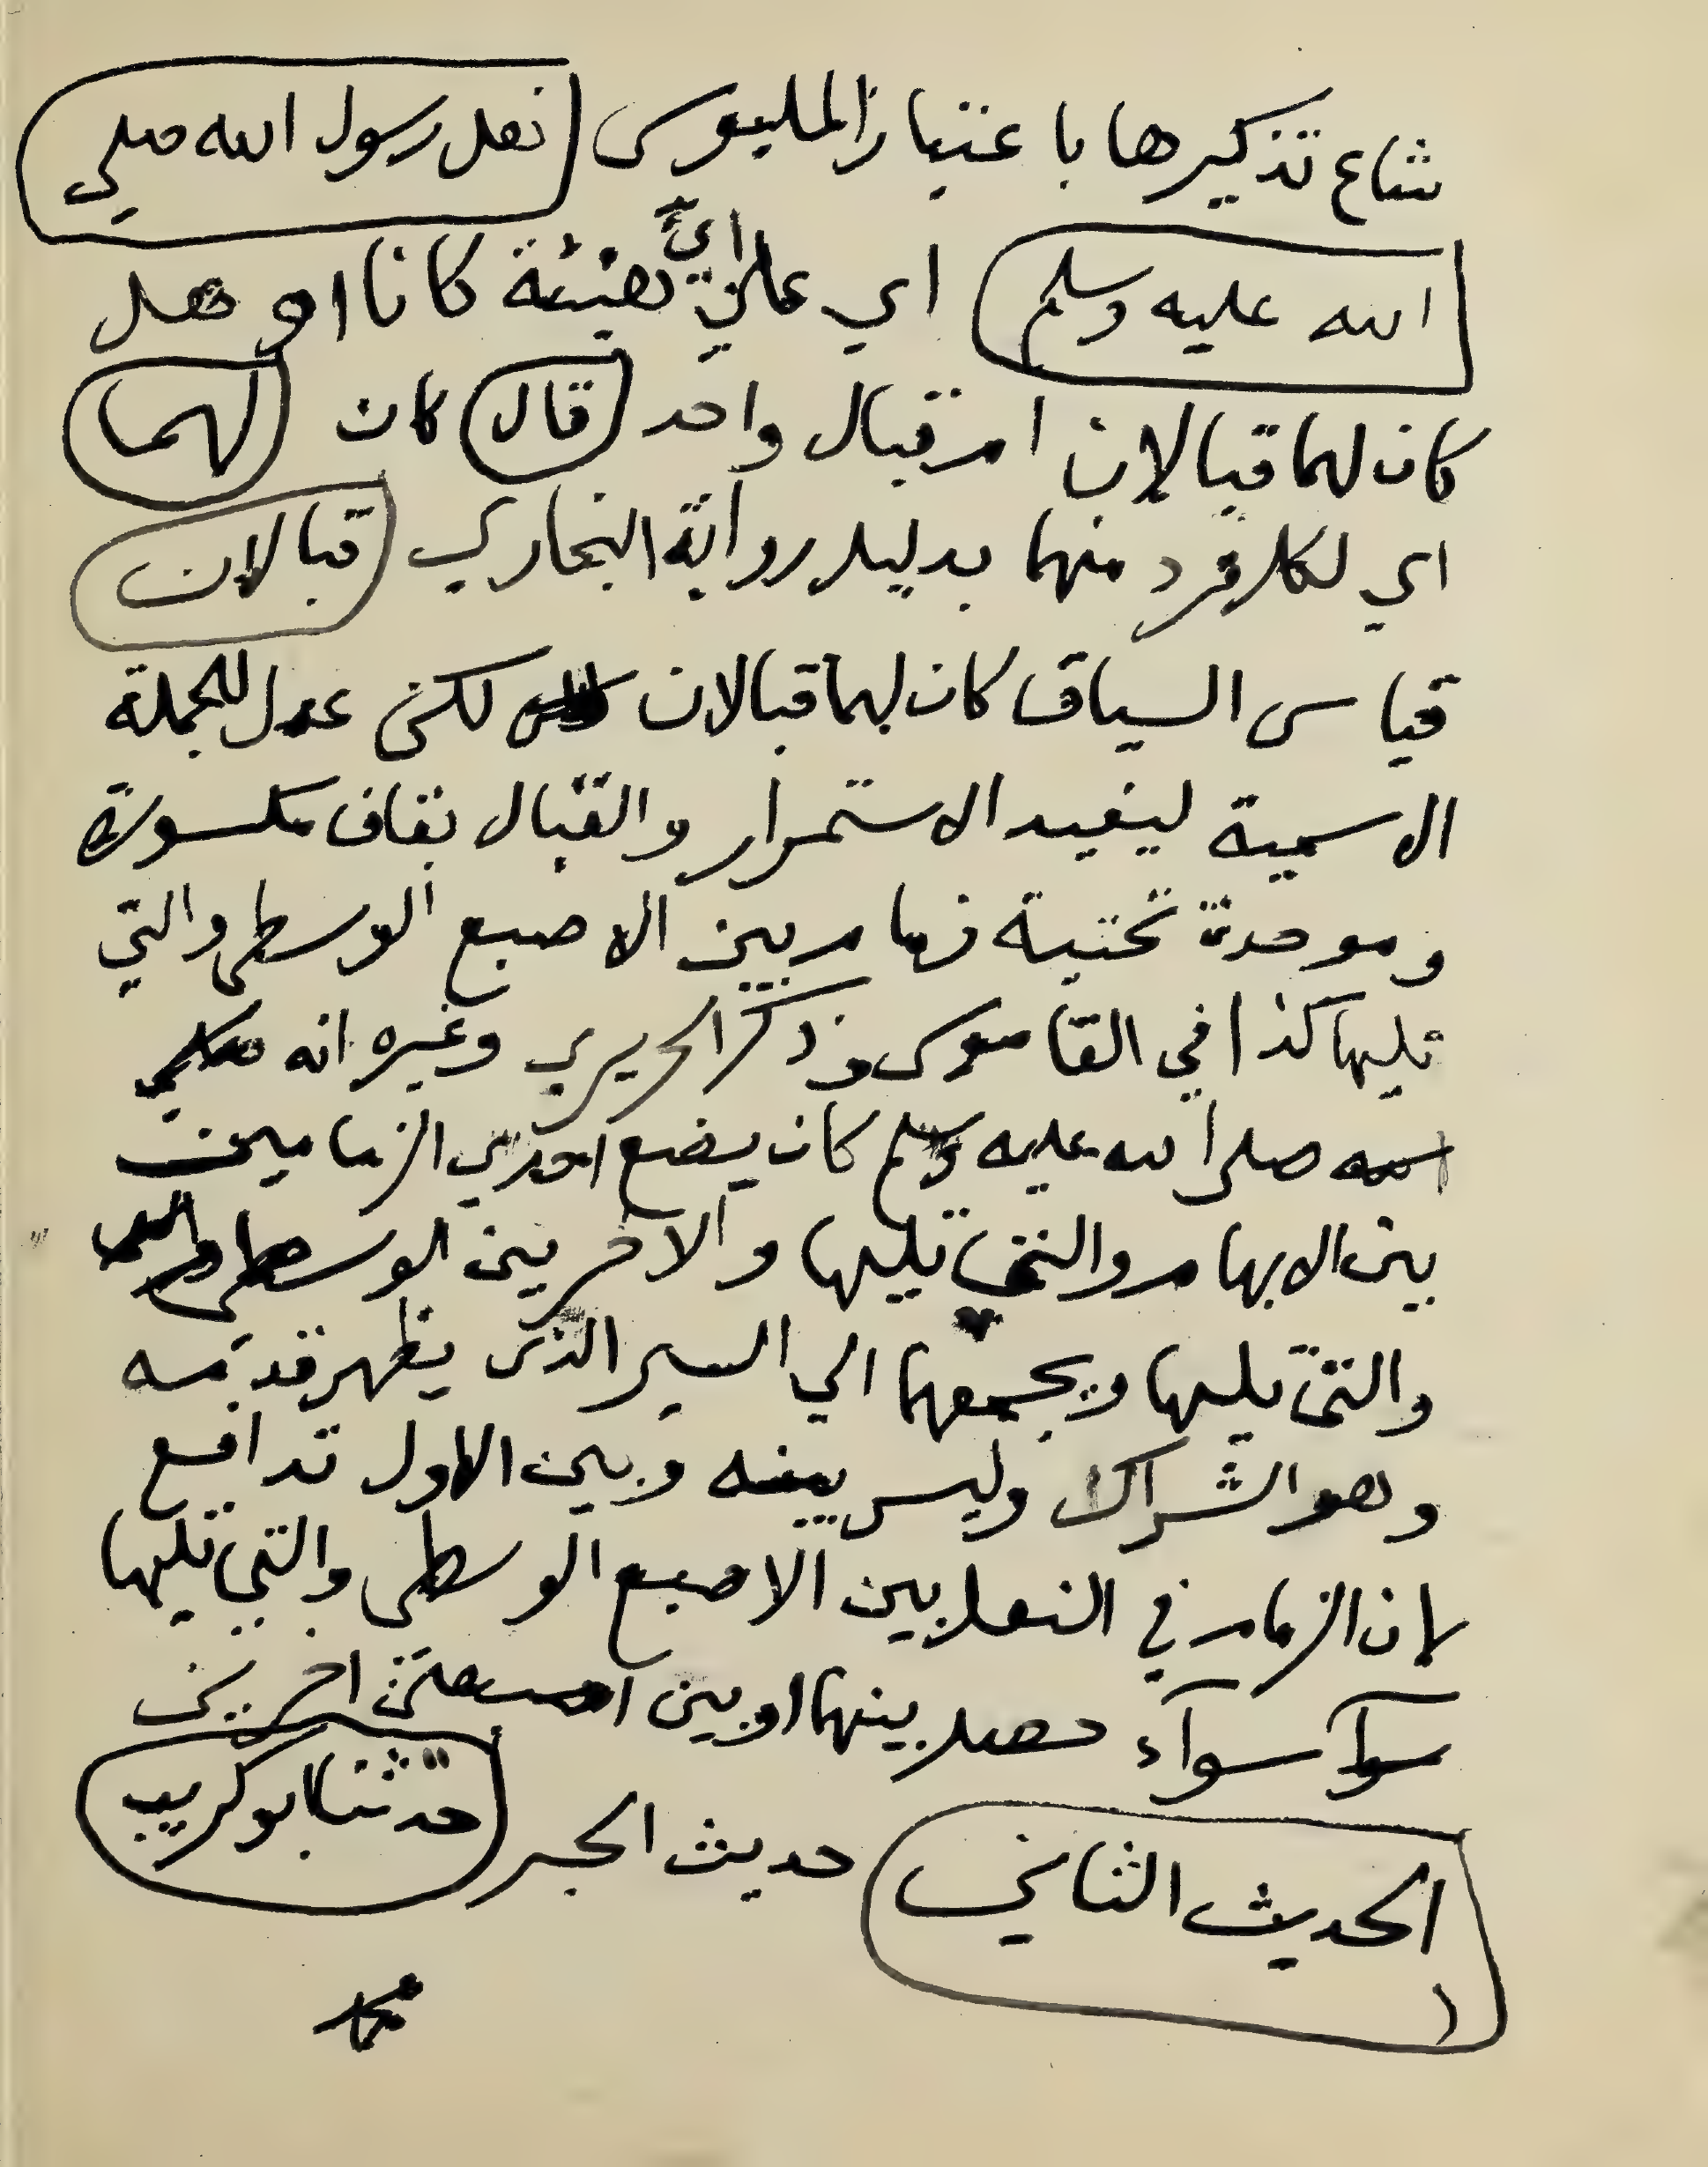 شاع تذكيرها باعتبار الملبوس نعل رسول الله صلى
الله عليه وسلم اي على ايّ هيئة كانا او هل
كان لهما قبالان ام قبال واحد قال كان لهما
اي لكل فرد منهما بدليل رواية البخاري قبالان
قياس السياق كان لهما قبالان لكن عدل للجملة
الاسمية ليفيد الاستمرار والقبال بقاف مكسورة
وموحدة تحتية زمام بين الاصبع الوسطى والتي
تليها كذا في القاموس وذكر الحريري وغيره انه
صلى الله عليه وسلم كان يضع احدي الزمامين
بين الابهام والتي تليها والاخر بين الوسطى
والتي تليها ويجمعهما الي السير الذي يظهر قدمه
وهو الشراك وليس بينه وبين الاول تدافع
لان الزمام في النعل بين الاصبع الوسطى والتي تليها
سوآء حصل بينهما او بين اصبعين اخرين
الحديث الثاني حديث الحبر حدثنا ابو كريب
محمد